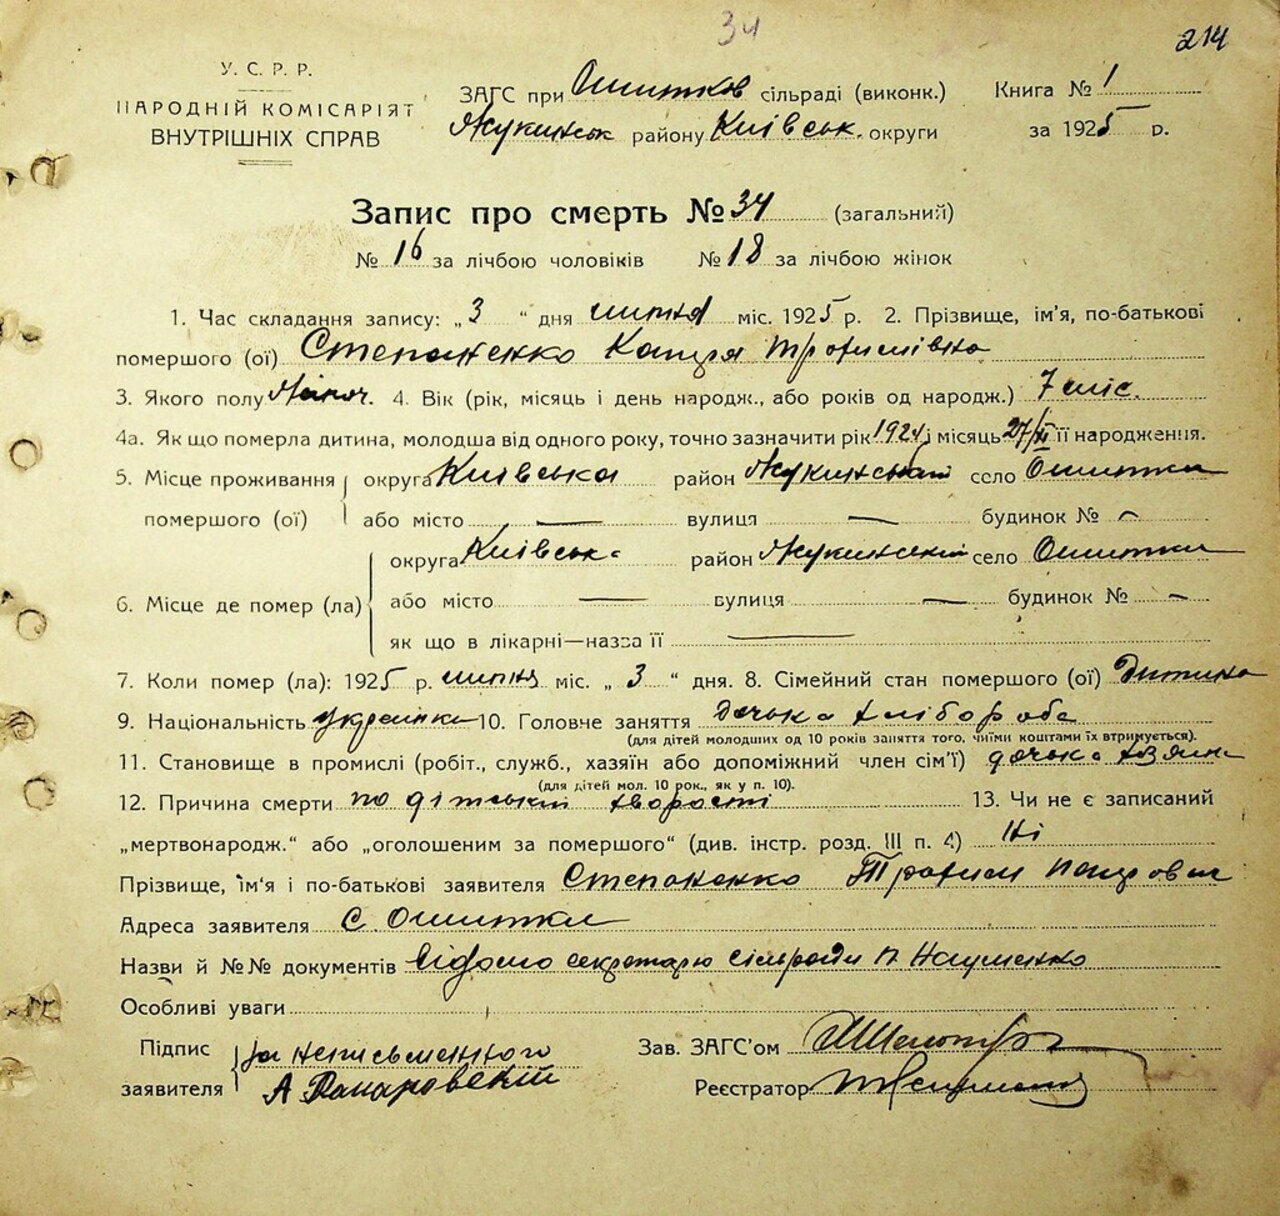 34
214
У. С. Р. Р.
НАРОДНІЙ КОМІСАРІЯТ
ВНУТРІШНІХ СПРАВ
ЗАГС при Ошитков сільраді (виконк.)
Жукинськ району Київськ. округи
Книга № 1
за 1925 р.
Запис про смерть № 34 (загальний)
№ 16 за лічбою чоловіків № 18 за лічбою жінок
1. Час складання запису: „ 3 “ дня липня міс. 1925 р. 2. Прізвище, ім'я, по-батькові
помершого (ої) Степаненко Катря Трохимівна
3. Якого полу Жіноч. 4. Вік (рік, місяць і день народж., або років од народж.) 7 міс.
4а. Як що померла дитина, молодша від одного року, точно зазначити рік 1924 і місяць 27/XI її народження.
5. Місце проживання округа Київська район Жукинський село Ошитки
помершого (ої) або місто — вулиця — будинок № —
6. Місце де помер (ла) округа Київськ. район Жукинський село Ошитки
або місто — вулиця — будинок № —
як що в лікарні—назва її —
7. Коли помер (ла): 1925 р. липня міс. „ 3 “ дня. 8. Сімейний стан помершого (ої) Дитина
9. Національність Українка 10. Головне заняття дочка хлібороба
(для дітей молодших од 10 років заняття того, чиїми коштами їх втримується).
11. Становище в промислі (робіт., служб., хазяїн або допоміжний член сім'ї) дочка хазяїн
(для дітей мол. 10 рок., як у п. 10).
12. Причина смерти по дітській хворості 13. Чи не є записаний
„мертвонародж.“ або „оголошеним за помершого“ (див. інстр. розд. III п. 4) Ні
Прізвище, ім'я і по-батькові заявителя Степаненко Трохим
Адреса заявителя с. Ошитки
Назви й №№ документів Відомо секретарю сільради П. Науменко
Особливі уваги
Підпис заявителя за неписьменного
А
Зав. ЗАГС'ом
Реєстратор